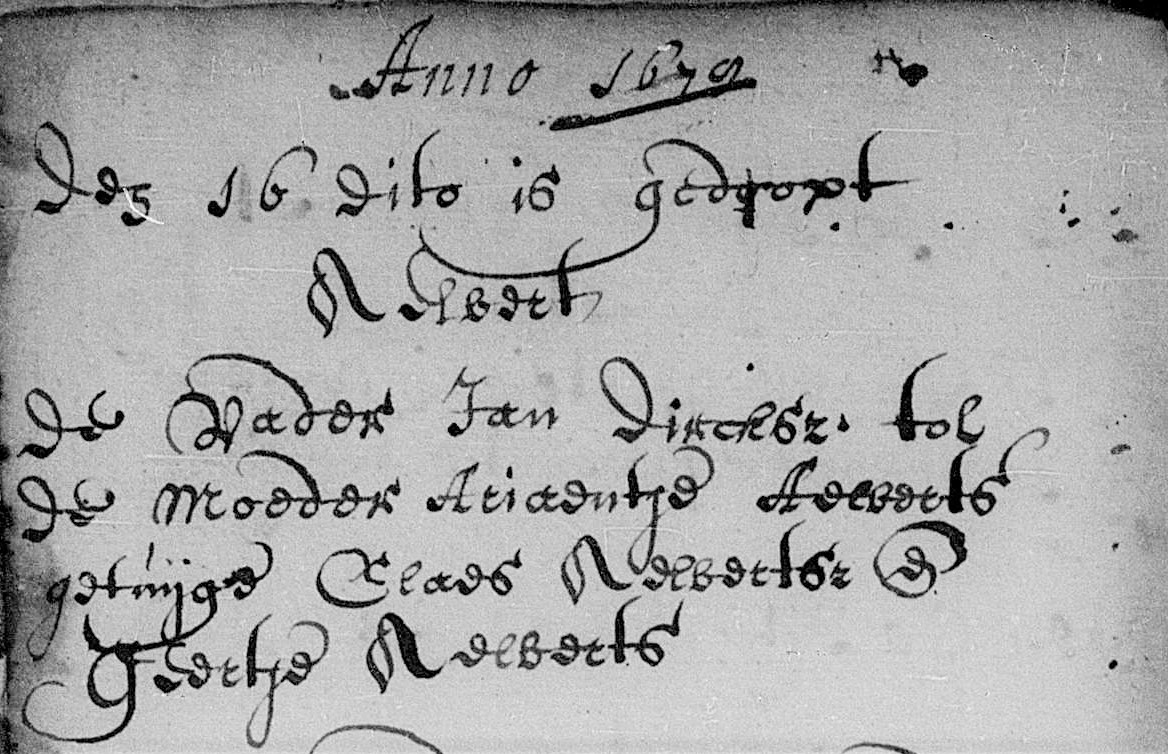 Anno 1679
Den 16 dito is gedoopt
Aelbert
De Vader Jan Dircksz. tol
De Moeder Ariaentje Aelberts
getuijge Claes Aelbertsz &
Geertje Aelberts